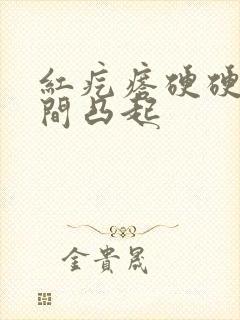 紅疙瘩硬硬
間凸起
金貴晟